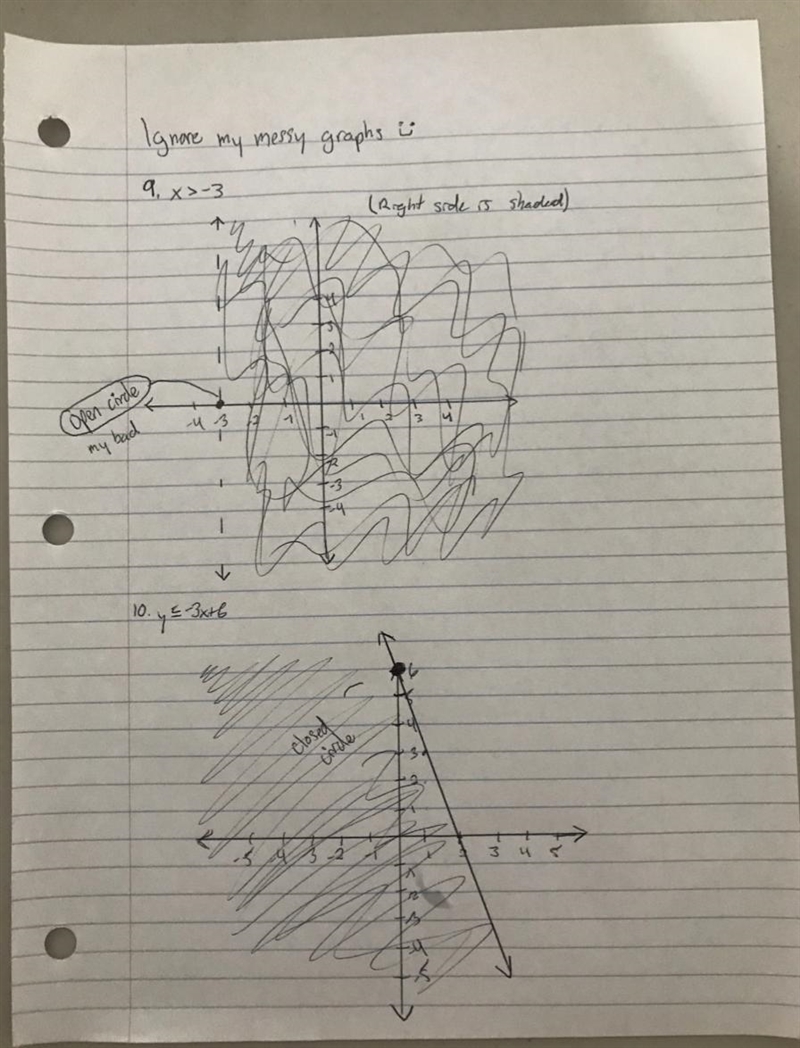 Ignore my messy graphs ü
9. x > -3
(Right side is shaded)
4
3
2
1
Open circle
my bad
-4 -3 -2 -1 1 2 3 4
-1
-2
-3
-4
10. y ≤ -3x+6
6
5
4
closed
circle
3
2
1
-5 -4 -3 -2 -1 1 2 3 4 5
-1
-2
-3
-4
-5